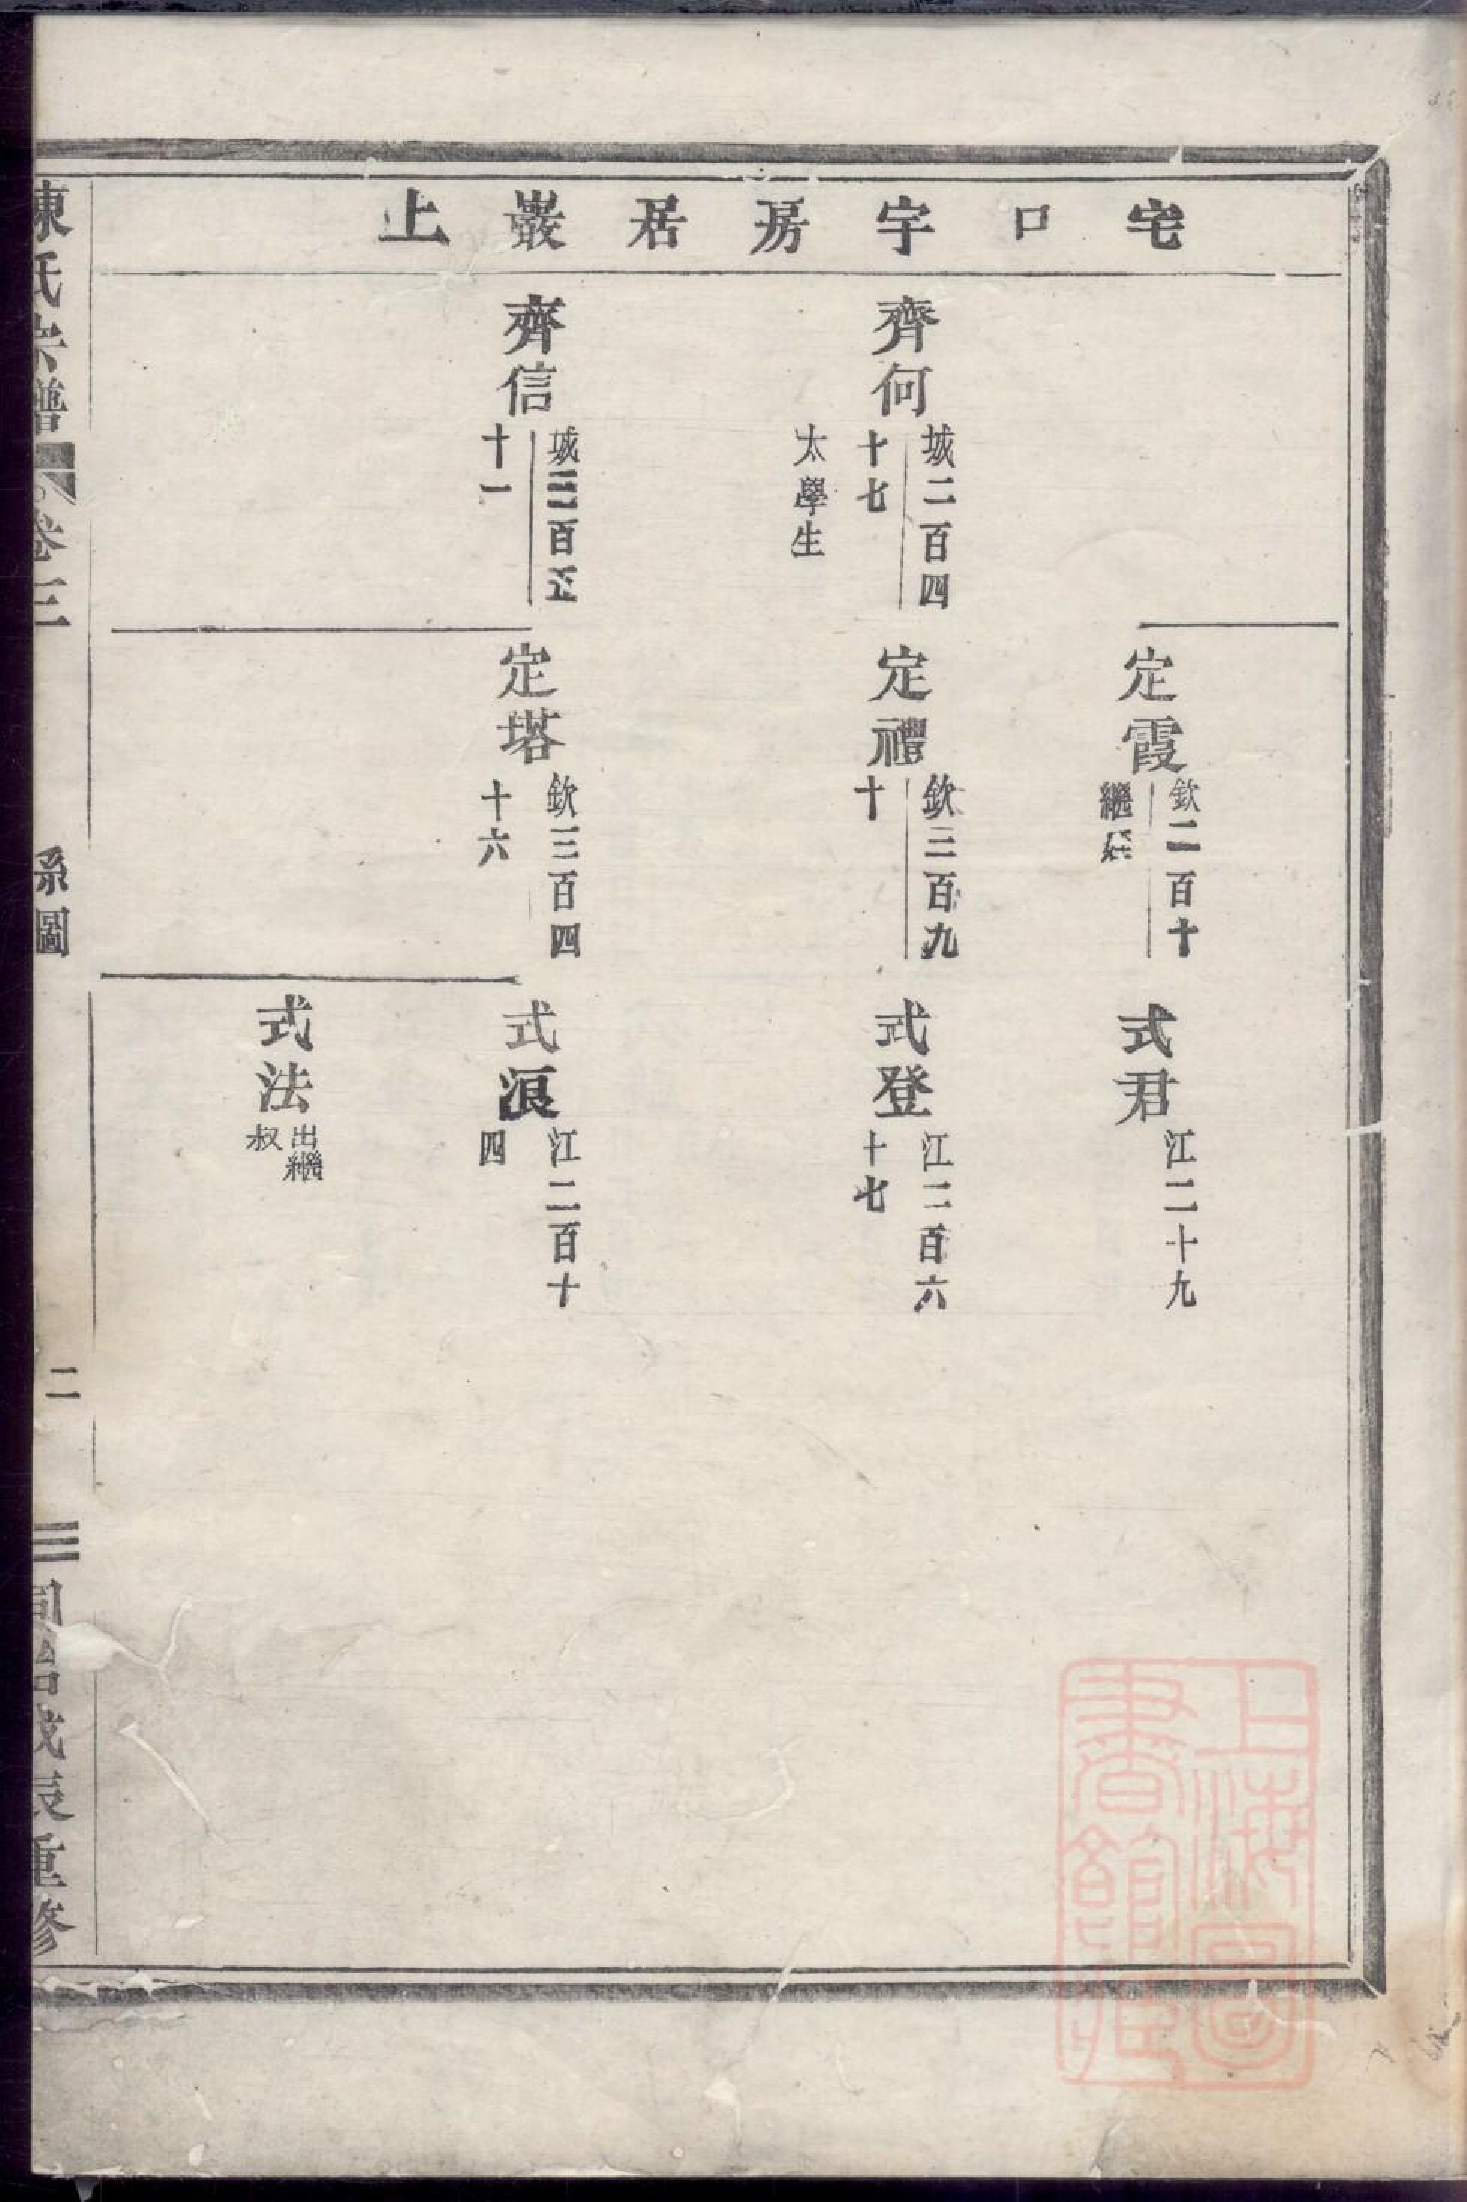 宅口宇房居巖上
定霞
欽二百十
繼侄
式君
江二十九
齊何
城二百四
十七
太學生
定禮
欽三百九
十
式登
江二百六
十七
齊信
城三百五
十一
定塔
欽三百四
十六
式浪
江二百十
四
式法
出繼
叔
陳氏宗譜
卷三
系圖
二
同治戊辰重修
上海圖
書館藏